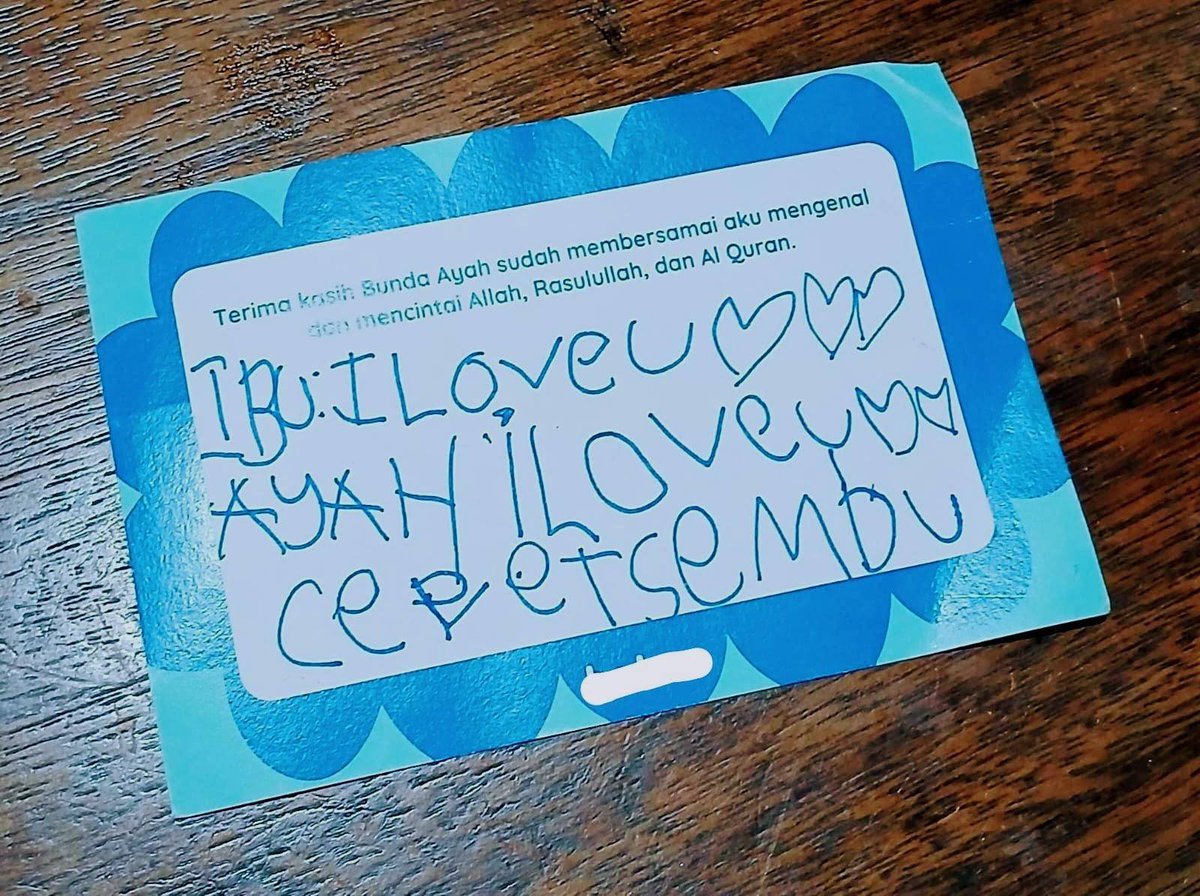 Terima kasih Bunda Ayah sudah membersamai aku mengenal
dan mencintai Allah, Rasulullah, dan Al Quran.
IBU I Love u
AYAH i LOVe u
CePeTSeMbu